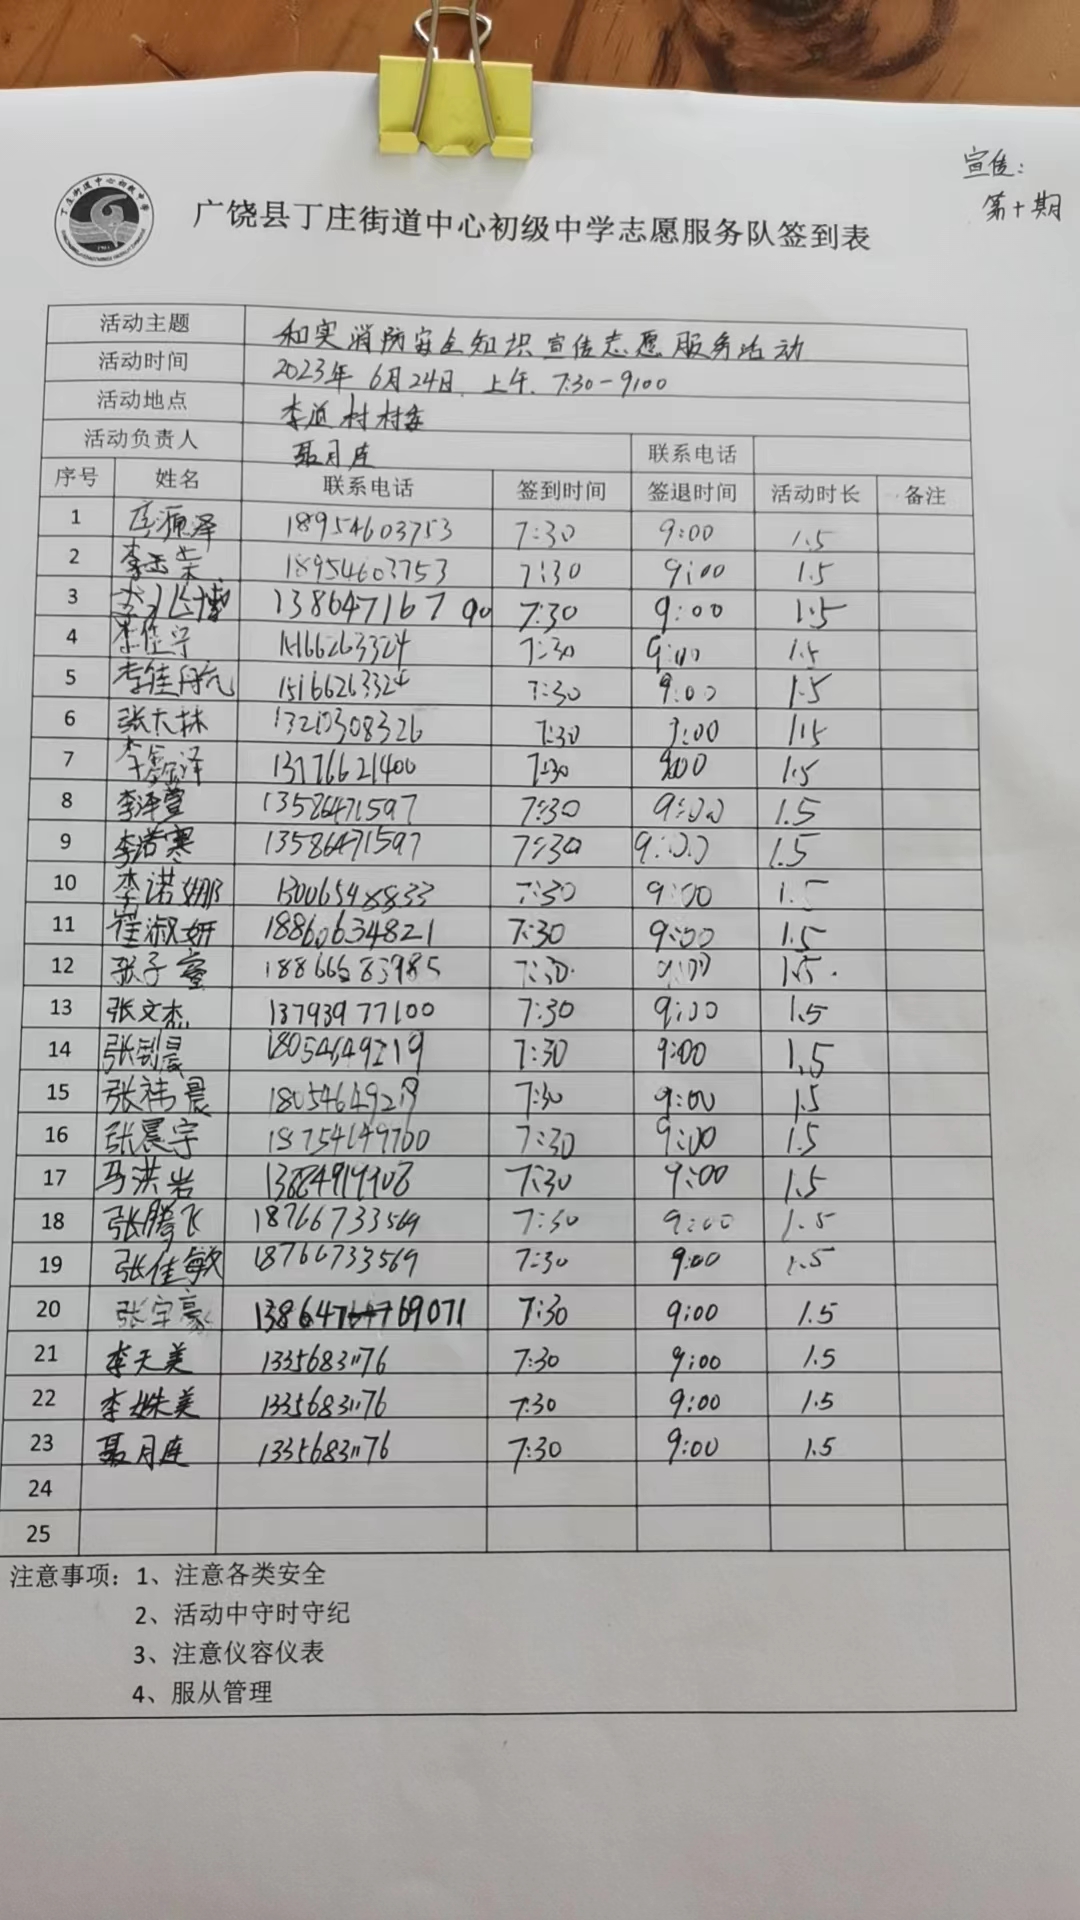 宣传：
第十期
广饶县丁庄街道中心初级中学志愿服务队签到表
活动主题 和实消防安全知识宣传志愿服务活动
活动时间 2023年6月24日 上午 7:30-9:00
活动地点 李道村村委
活动负责人 聂月连 联系电话
序号 姓名 联系电话 签到时间 签退时间 活动时长 备注
1 18954603753 7:30 9:00 1.5
2 18954603753 7:30 9:00 1.5
3 13864716790 7:30 9:00 1.5
4 李佳宁 15166263324 7:30 9:00 1.5
5 李佳航 15166263324 7:30 9:00 1.5
6 张大林 7:30 9:00 1.5
7 7:30 9:00 1.5
8 李泽萱 13586471597 7:30 9:00 1.5
9 李诺寒 13586471597 7:30 9:00 1.5
10 李诺娜 13006548833 7:30 9:00 1.5
11 崔淑妍 18860634821 7:30 9:00 1.5
12 张子 18866683985 7:30 9:00 1.5
13 张文杰 13793977100 7:30 9:00 1.5
14 18054649219 7:30 9:00 1.5
15 张祎晨 18054649219 7:30 9:00 1.5
16 张晨宇 18754149700 7:30 9:00 1.5
17 马洪岩 7:30 9:00 1.5
18 张腾飞 18766733569 7:30 9:00 1.5
19 张佳敏 18766733569 7:30 9:00 1.5
20 张宇豪 7:30 9:00 1.5
21 李天美 13356831176 7:30 9:00 1.5
22 李姝美 13356831176 7:30 9:00 1.5
23 聂月连 13356831176 7:30 9:00 1.5
24
25
注意事项：1、注意各类安全
2、活动中守时守纪
3、注意仪容仪表
4、服从管理